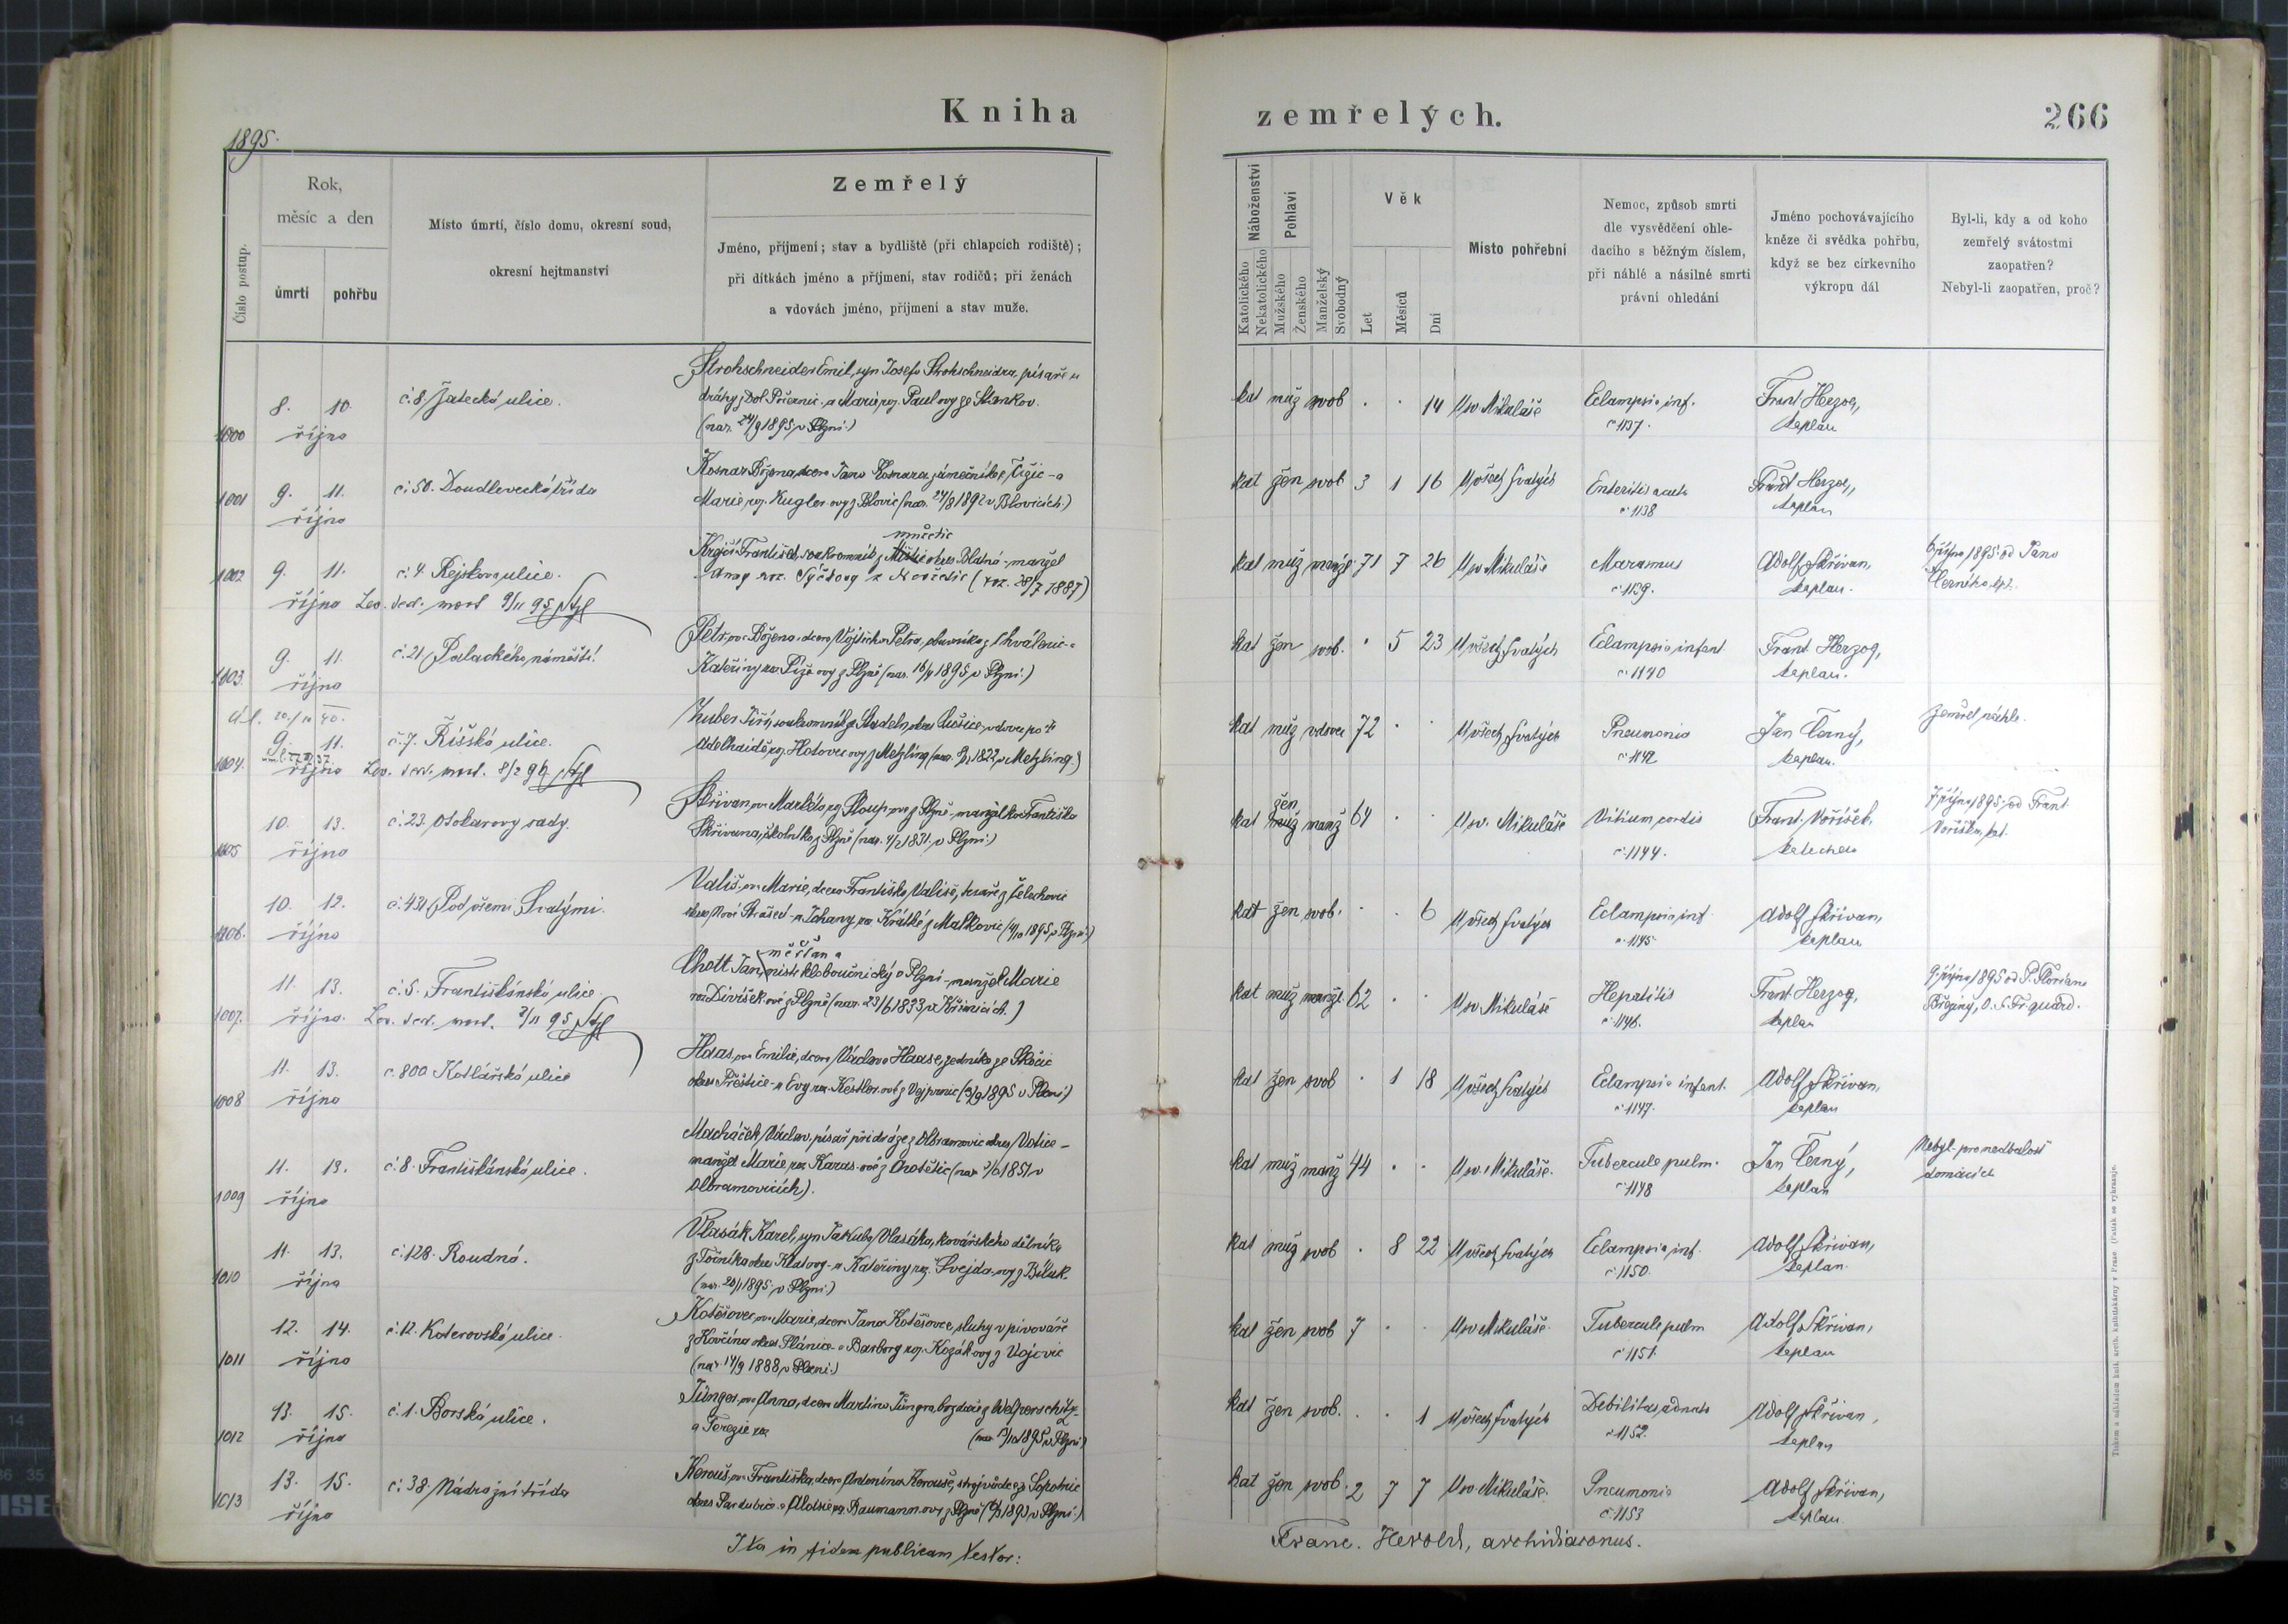 Kniha
zemřelých.
266
1895.
Číslo postup.
Rok,
měsíc a den
úmrtí
pohřbu
Místo úmrtí, číslo domu, okresní soud,
okresní hejtmanství
Zemřelý
Jméno, příjmení; stav a bydliště (při chlapcích rodiště);
při dítkách jméno a příjmení, stav rodičů; při ženách
a vdovách jméno, příjmení a stav muže.
Náboženství
Katolického
Nekatolického
Pohlaví
Mužského
Ženského
Manželský
Svobodný
Věk
Let
Měsíců
Dní
Místo pohřební
Nemoc, způsob smrti
dle vysvědčení ohle-
dacího s běžným číslem,
při náhlé a násilné smrti
právní ohledání
Jméno pochovávajícího
kněze či svědka pohřbu,
když se bez církevního
výkropu dál
Byl-li, kdy a od koho
zemřelý svátostmi
zaopatřen?
Nebyl-li zaopatřen, proč?
Strohschneider Emil, syn Josefa Strohschneidra, písaře u
8. 10. č. 8 Žatecká ulice. dráhy z Dol. Počernic a Marie roz. Paulovy ze Stankov.
1000 října (nar. 24/9 1895 v Plzni.)
kat muž svob . . 14 U sv. Mikuláše Eclampsia inf. Frant. Herzog,
č 1137. kaplan
Kosnar Božena, dcera Jana Kosnara, zámečníka z Čižic - a
1001 9. 11. č. 50. Doudlevecká třída Marie, roz. Kuglerovy z Blovic (nar. 24/8 1892 v Blovicích.)
října
kat žen svob 3 1 16 U všech Svatých Enteritis acuta Frant Herzog,
č 1138 kaplan
Krejčí František, soukromník z okres Blatná - manžel
1002 9. 11. č. 4 Rejskova ulice. Anny roz.
října Lov. test. mort. 9/11 95
kat muž manže 71 7 26 U sv. Mikuláše Marasmus Adolf Skřivan, října 1895 od Jana
č 1139. kaplan. Černého, kpl.
Petr, Božena, dcera Vojtěcha Petra, obuvníka z Chválenic - a
9. 11. č. 21 Palackého náměstí. Kateřiny roz. z Plzně (nar. 16/4 1895 v Plzni.)
1003. října
kat žen svob. . 5 23 U všech Svatých Eclampsia infant. Frant. Herzog,
č 1140 kaplan.
Huber Jiří, soukromník z okres vdovec po †
9. 11. č. 7. Říšská ulice. Adelhaidě roz. z Metzling (nar. 1822 v Metzling.)
1004. října Lov. test. mort. 8/2 96
kat muž vdovec 72 . . U všech Svatých Pneumonia Jan Černý, zemřel náhle.
č 1142 kaplan.
Skřivan, Markéta, roz. z Plzně, manželka Františka
10. 13. č. 23. Otokarovy sady. Skřivana, školníka z Plzně (nar. 1831 v Plzni.)
1005 října
žen
kat muž manž 64 . . U sv. Mikuláše Vitium cordis Frant. Voříšek, 7 října 1895 od Frant
č 1144. katecheta Voříška, kat.
Vališ, Marie, dcera Františka Vališe, tesaře z Čelechovic
10. 12. č. 431 Pod všemi Svatými. okres Nové Strašecí - a Johany roz. Krátké z Malkovic (4/10 1895 v Plzni.)
1006. října
kat žen svob. . . 6 U všech Svatých Eclampsia inf. Adolf Skřivan,
č 1145 kaplan
měšťan a
Chott Jan, mistr kloboučnický v Plzni - manžel Marie
11. 13. č. 5. Františkánská ulice. roz. Divišekové z Plzně (nar. 23/6 1833 v Křimicích.)
1007. října. Lov. test. mort. 95
kat muž manžel 62 . . U sv. Mikuláše Hepatitis Frant Herzog, 9. října 1895 od P. Floriana
č 1146. kaplan
Haas, Emilie, dcera Václava Haase, zedníka ze Skočic
11. 13. č. 800 Kotlářská ulice okres Přeštice - a Evy roz. z Vejprnic (1895 v Plzni)
1008 října
kat žen svob . 1 18 U všech Svatých Eclampsia infant. Adolf Skřivan,
č 1147. kaplan
Macháček Václav, písař při dráze z Olbramovic okres Votice -
11. 13. č. 8. Františkánská ulice. manžel Marie, roz. Karasové z Chotětic (nar. 1851 v
1009 října Olbramovicích).
kat muž manž 44 . . U sv. Mikuláše. Tubercule pulm. Jan Černý, Nebyl - pro nedbalost
č 1148 kaplan domácích
Vlasák Karel, syn Jakuba Vlasáka, kovářského dělníka
11. 13. č. 128. Roudná. z Točníka okres Klatovy - a Kateřiny roz. Švejdovy z Běluk.
1010 října (nar. 20/1 1895 v Plzni.)
kat muž svob . 8 22 U všech Svatých Eclampsia inf. Adolf Skřivan,
č 1150. kaplan.
Kotěšovec, Marie, dcera Jana Kotěšovce, sluhy v pivováře
12. 14. č. 12. Koterovská ulice. z Kovčína okres Plánice - a Barbory roz. Kozákovy z Vojovic
1011 října (nar. 14/9 1888 v Plzni.)
kat žen svob 7 . . U sv. Mikuláše. Tubercule pulm Adolf Skřivan,
č 1151. kaplan
Jünger, Anna, dcera Martina Jüngra z
13. 15. č. 1. Borská ulice. a Terezie roz. (nar. 1895 v Plzni)
1012 října
kat žen svob. . . 1 U všech Svatých Debilitas adnata Adolf Skřivan,
č 1152. kaplan
Kerouš, Františka, dcera Antonína Kerouše, strojvůdce z
13. 15. č. 38. Nádražní třída okres Pardubice - a Aloisie roz. Baumannovy z Plzně (1893 v Plzni.)
1013 října
kat žen svob. 2 7 7 U sv. Mikuláše. Pneumonia Adolf Skřivan,
č 1153 kaplan
Ita in fidem publicam testor:
Franc. Herold, archidiaconus.